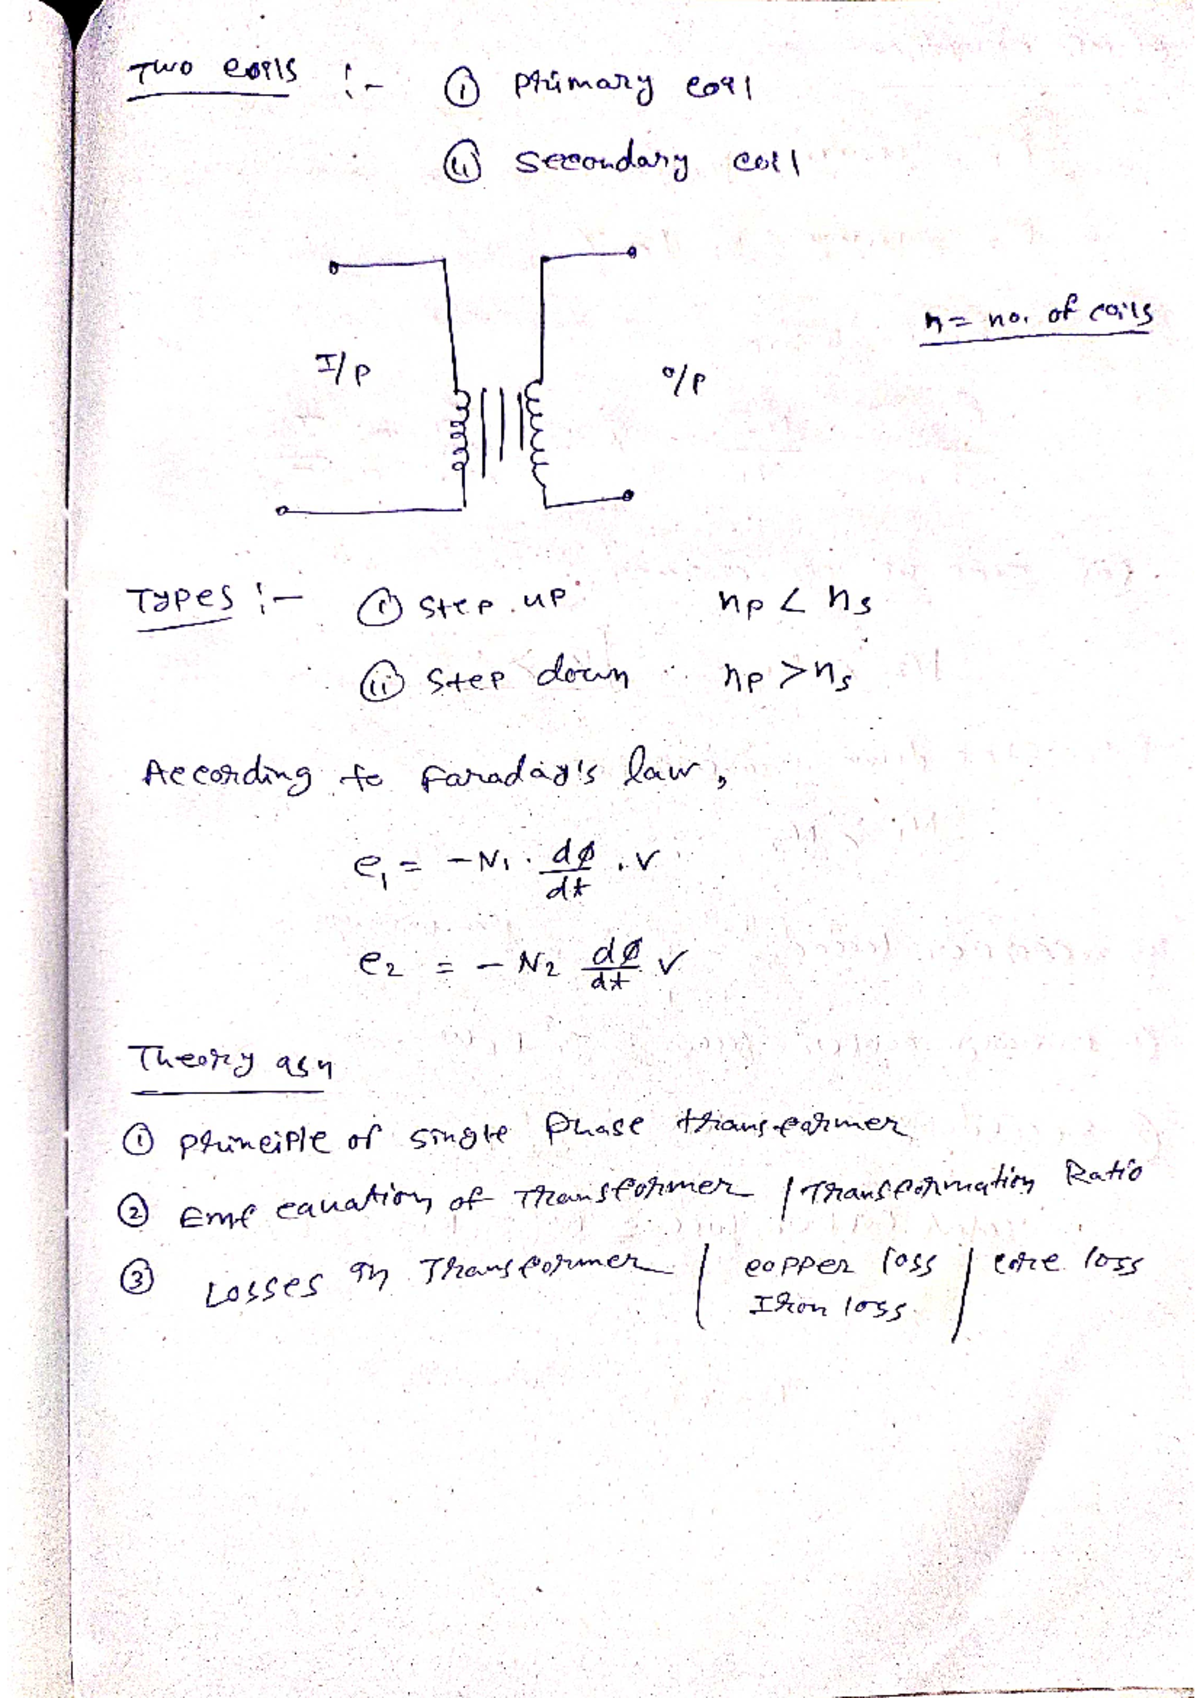 Two coils :- (i) Primary coil
(ii) Secondary coil
n = no. of coils
I/P
O/P
Types :- (i) Step up np < ns
(ii) Step down np > ns
According to Faraday's law,
e₁ = -N₁ · dφ/dt · V
e₂ = - N₂ dφ/dt V
Theory asn
① Principle of single Phase transformer
② Emf equation of Transformer / Transformation Ratio
③ Losses in Transformer / copper loss / core loss
Iron loss